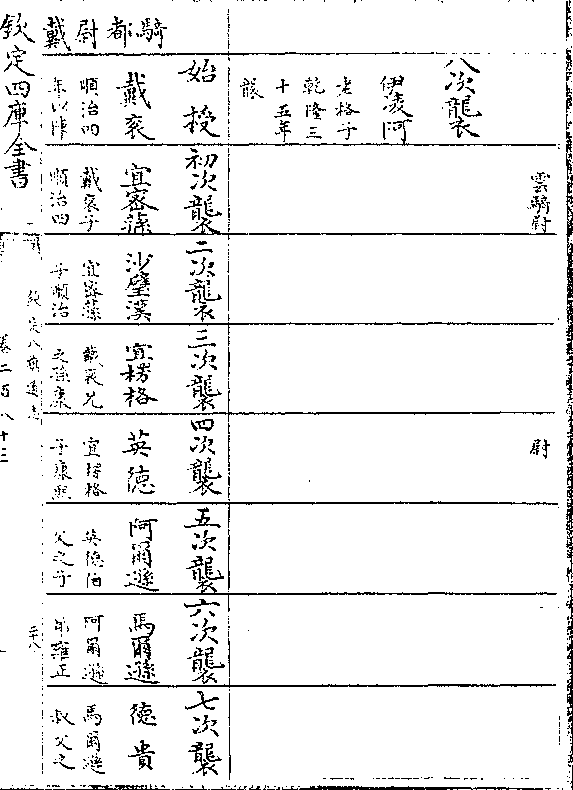 雲騎尉
尉
八次襲
伊凌阿
老格子
乾隆三
十五年
襲
騎都尉戴
始授
戴袞
順治四
年以陣
初次襲
宜密蓀
戴袞子
順治四
二次襲
沙璧漢
宜密蓀
子順治
三次襲
宜楞格
戴袞兄
之孫康
四次襲
英德
宜楞格
子康熙
五次襲
阿爾遜
英德伯
父之子
六次襲
馬爾遜
阿爾遜
弟雍正
七次襲
德貴
馬爾遜
叔父之
欽定四庫全書
欽定八旗通志
卷二百八十三